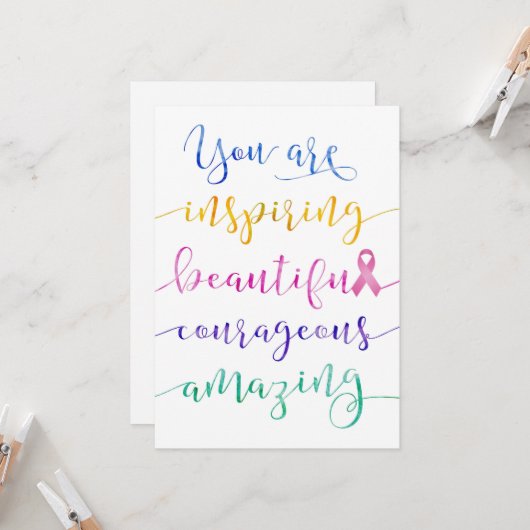 You are
inspiring
beautiful
courageous
amazing